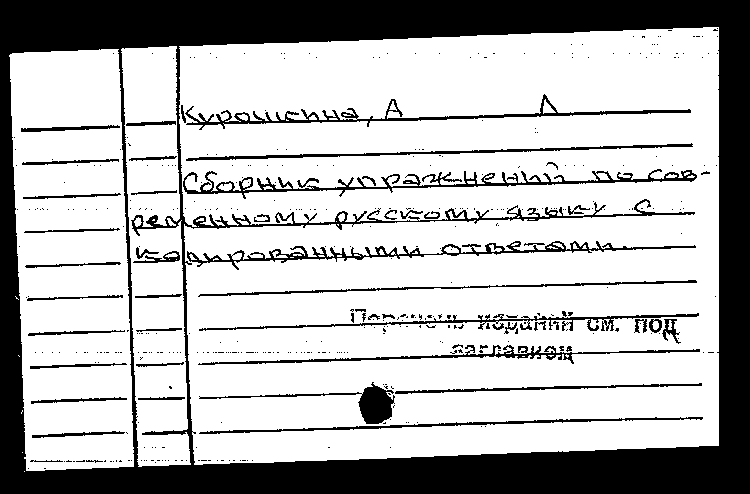 Курошина, А Л
Сборник упражнений по сов-
ременному русскому языку с
кодированными ответами.
Перечень изданий см. под
заглавием